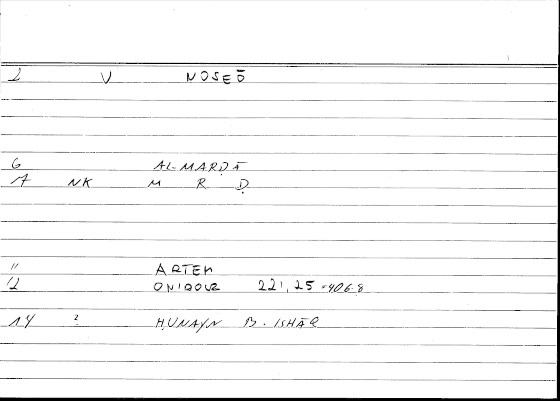 2 V NOSEŌ
6 AL-MARḌĀ
17 NK M R Ḍ
11 ARTEM
12 ONIQOUR 221,25 = 406.8
14 ? ḤUNAYN B. ISḤĀQ